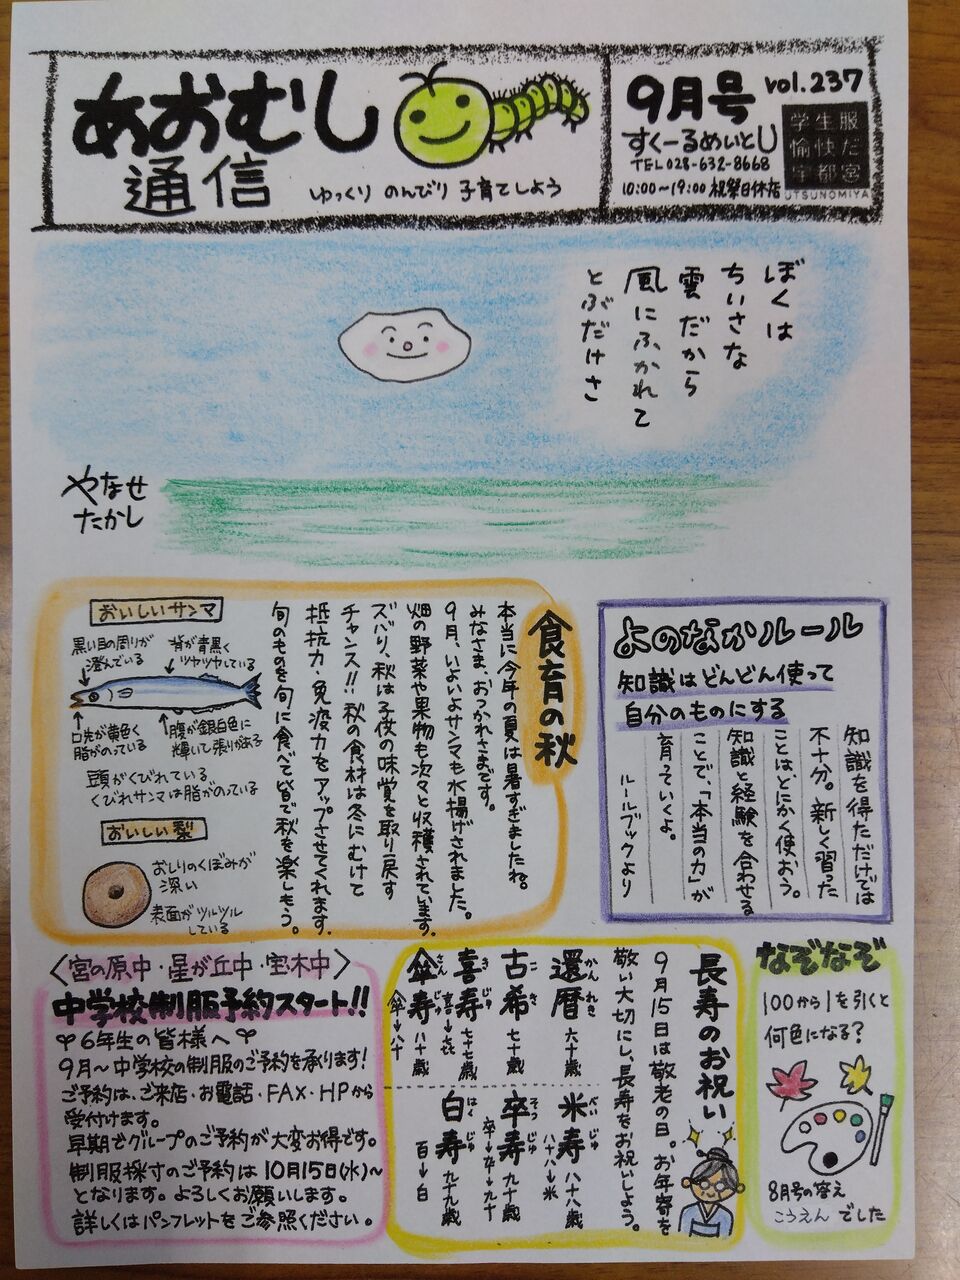 あおむし
通信
ゆっくり のんびり 子育てしよう
9月号 vol.237
すくーるめいとU
TEL 028-632-8668
10:00~19:00 祝祭日休店
学生服
愉快だ
宇都宮
UTSUNOMIYA
ぼくは
ちいさな
雲だから
風にふかれて
とぶだけさ
やなせ
たかし
食育の秋
本当に今年の夏は暑すぎましたね。
みなさま、おつかれさまです。
9月、いよいよサンマも水揚げされました。
畑の野菜や果物も次々と収穫されています。
ズバリ、秋は子供の味覚を取り戻す
チャンス!! 秋の食材は冬にむけて
抵抗力・免疫力をアップさせてくれます。
旬のものを旬に食べて皆で秋を楽しもう。
おいしいサンマ
黒い目の周りが
澄んでいる
背が青黒く
ツヤツヤしている
口先が黄色く
脂がのっている
腹が銀白色に
輝いて張りがある
頭がくびれている
くびれサンマは脂がのっている
おいしい梨
おしりのくぼみが
深い
表面がツルツル
している
よのなかルール
知識はどんどん使って
自分のものにする
知識を得ただけでは
不十分。新しく習った
ことは、とにかく使おう。
知識と経験を合わせる
ことで、「本当の力」が
育っていくよ。
ルールブックより
〈宮の原中・星が丘中・宝木中〉
中学校制服予約スタート!!
6年生の皆様へ
9月～中学校の制服のご予約を承ります!
ご予約は、ご来店・お電話・FAX・HPから
受付けます。
早期でグループのご予約が大変お得です。
制服採寸のご予約は10月15日(水)～
となります。よろしくお願いします。
詳しくはパンフレットをご参照ください。
長寿のお祝い
9月15日は敬老の日。お年寄を
敬い大切にし、長寿をお祝いしよう。
還暦 かんれき 六十歳
古希 こき 七十歳
喜寿 きじゅ 七十七歳
喜→㐂
傘寿 さんじゅ 八十歳
傘→八十
米寿 べいじゅ 八十八歳
八十八→米
卒寿 そつじゅ 九十歳
卒→卆→九十
白寿 はくじゅ 九十九歳
百→白
なぞなぞ
100から1を引くと
何色になる?
8月号の答え
こうえん でした